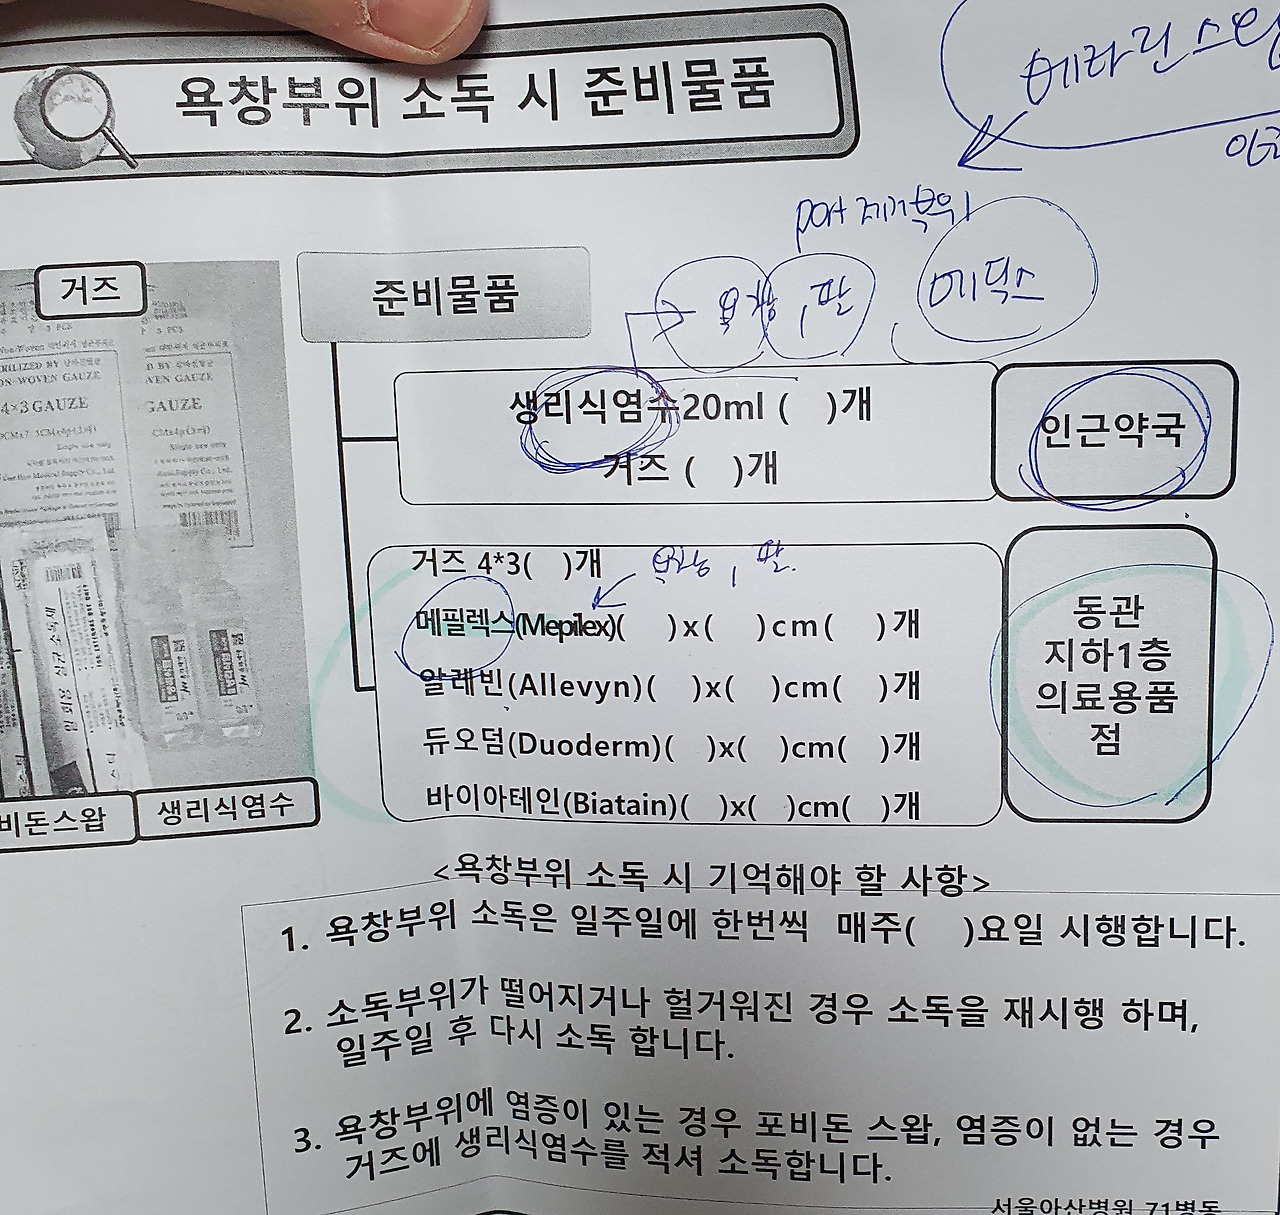 욕창부위 소독 시 준비물품
메라린스왑
port 제거부위
욕창, 팔
메딕스
거즈
준비물품
5 PCS
5 PCS
NON-WOVEN GAUZE
4×3 GAUZE
GAUZE
생리식염수20ml ( )개
거즈 ( )개
인근약국
거즈 4*3( )개
욕창, 팔.
메필렉스(Mepilex)( )x( )cm( )개
알레빈(Allevyn)( )x( )cm( )개
듀오덤(Duoderm)( )x( )cm( )개
바이아테인(Biatain)( )x( )cm( )개
동관
지하1층
의료용품
점
일회용 멸균 소독제
비돈스왑
생리식염수
<욕창부위 소독 시 기억해야 할 사항>
1. 욕창부위 소독은 일주일에 한번씩 매주( )요일 시행합니다.
2. 소독부위가 떨어지거나 헐거워진 경우 소독을 재시행 하며,
일주일 후 다시 소독 합니다.
3. 욕창부위에 염증이 있는 경우 포비돈 스왑, 염증이 없는 경우
거즈에 생리식염수를 적셔 소독합니다.
서울아산병원 71병동